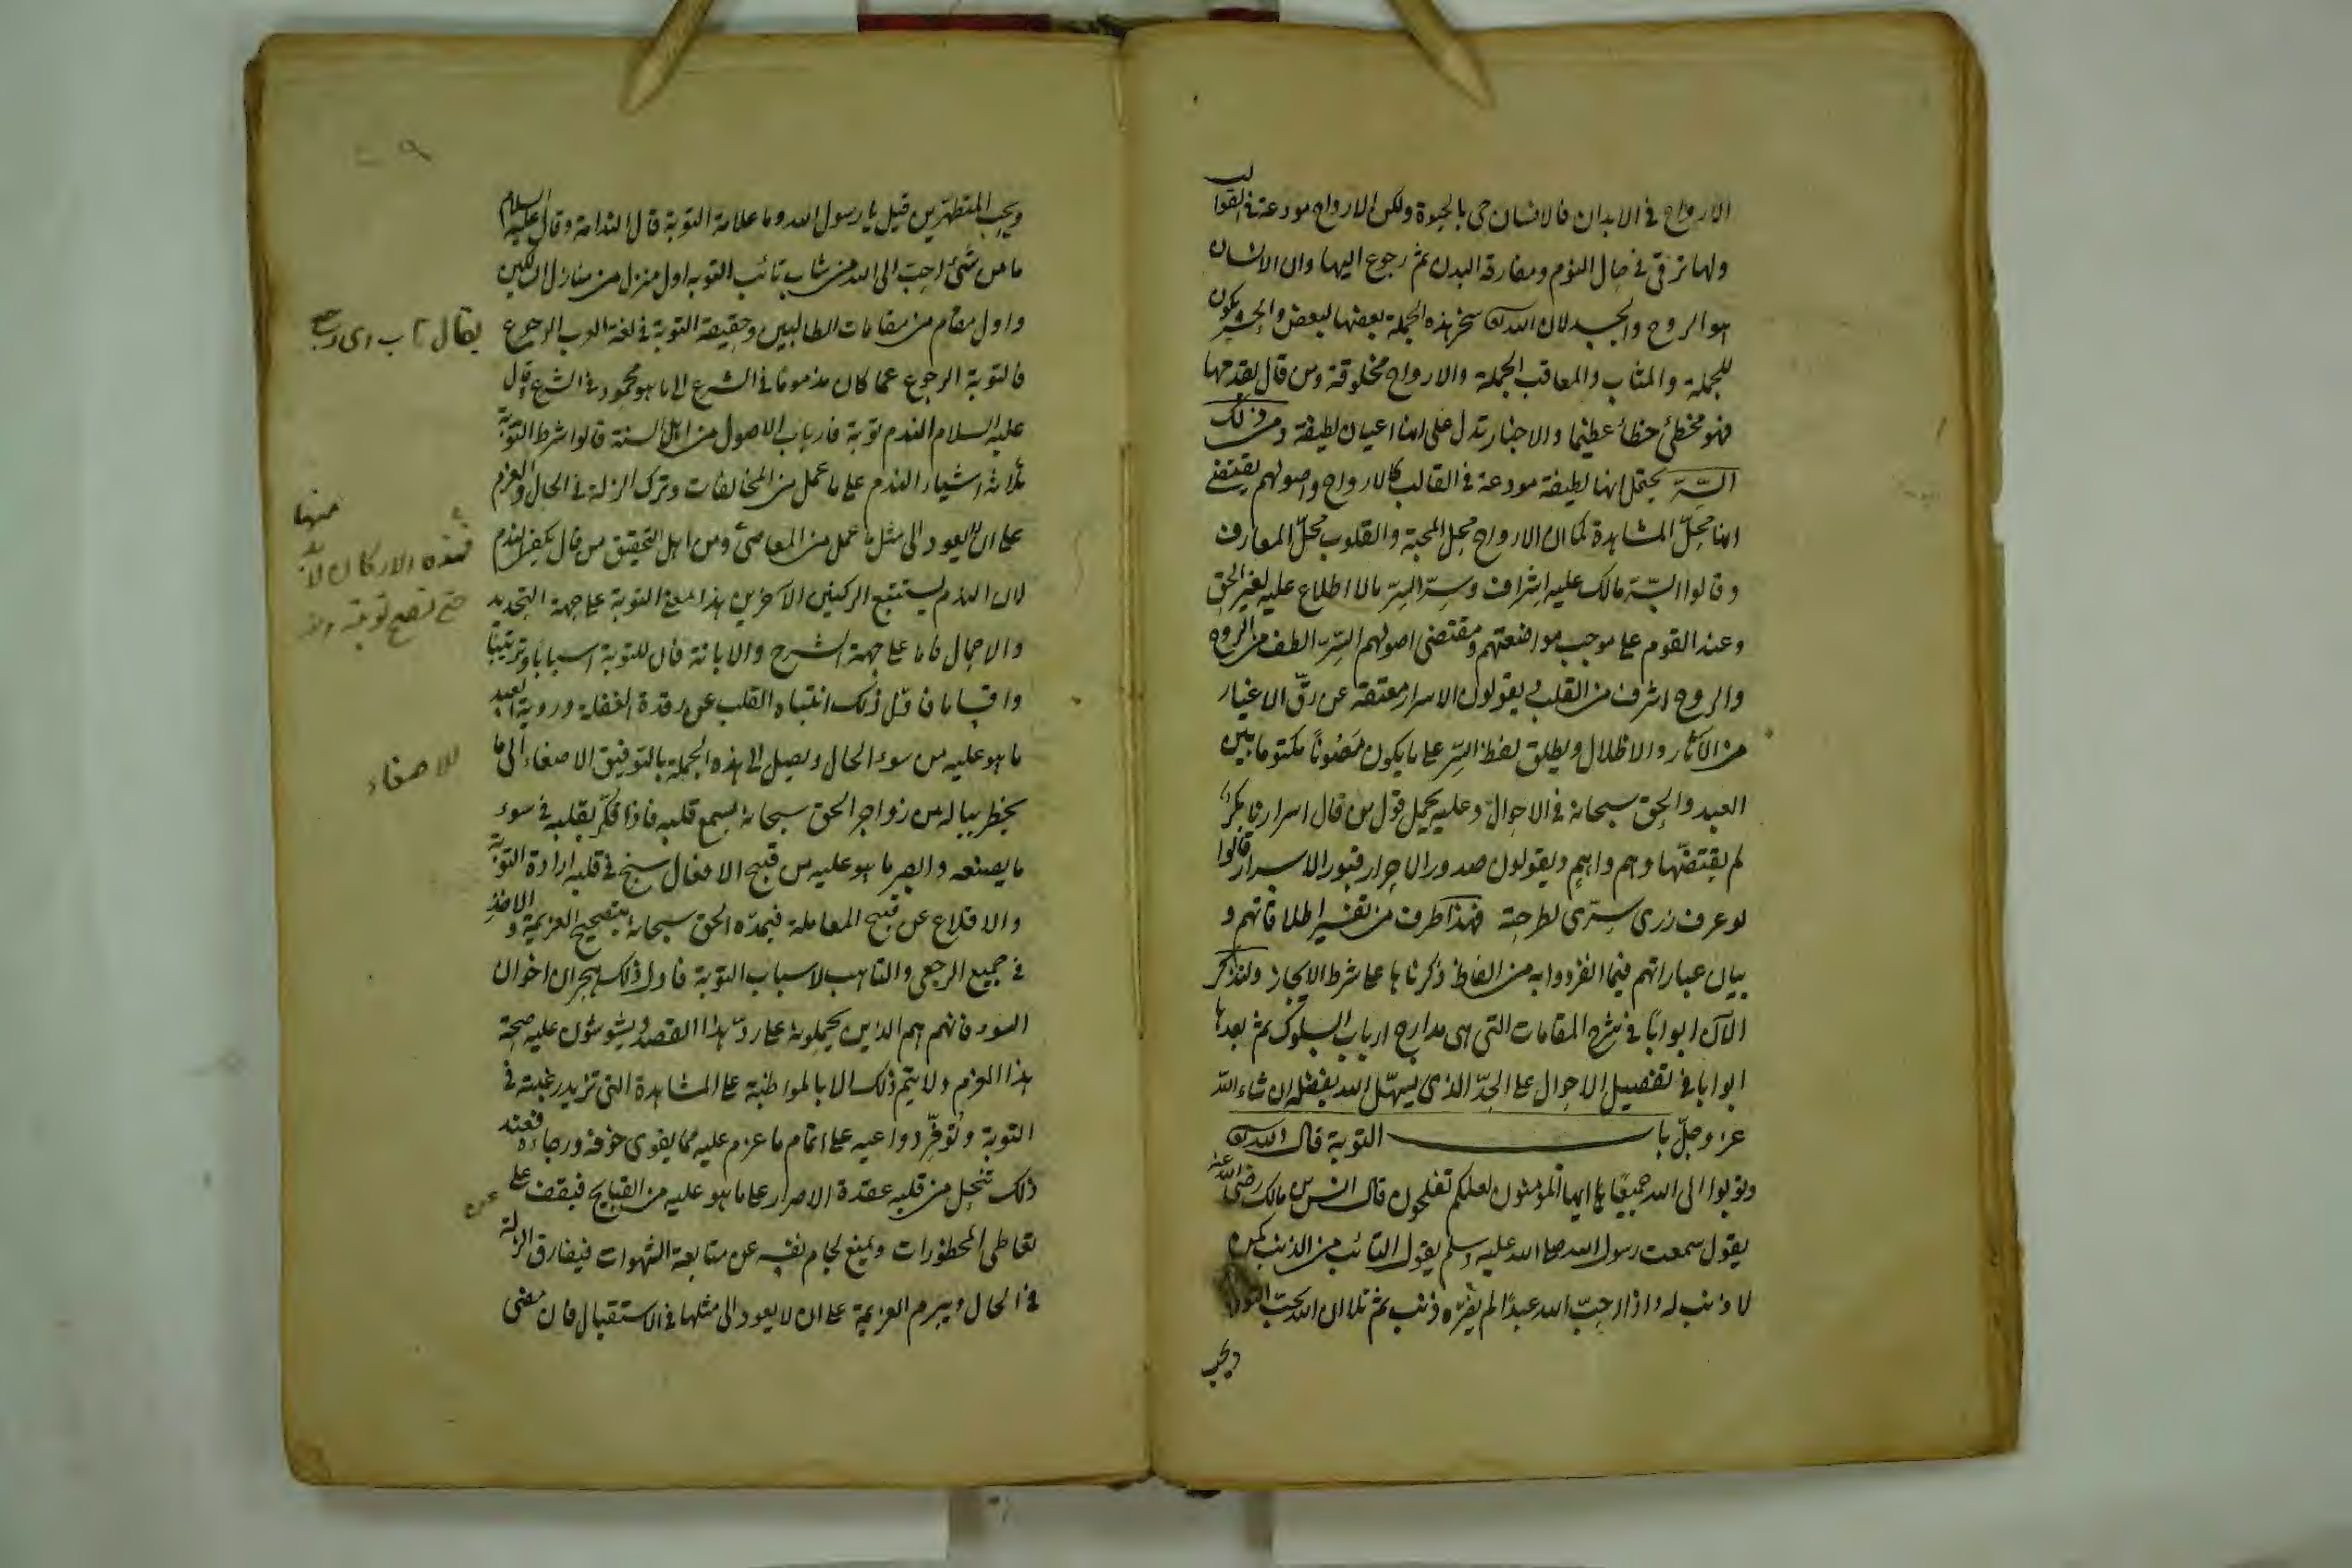 الارواح فى الابدان فالانسان حى بالحيوة ولكن الارواح مودعة فى القوالب
ولها ترقى فى حال النوم ومفارقة البدن ثم رجوع اليها وان الانسان
هو الروح والجسد لان الله تع سخر هذه الجملة بعضها لبعض والحشر يكون
للجملة والمثاب والمعاقب الجملة والارواح مخلوقة ومن قال بقدمها
فهو مخطئ خطأ عظيما والاخبار تدل على انها اعيان لطيفة ومن ذلك
السِّرّ يحتمل انها لطيفة مودعة فى القالب كالارواح واصولهم يقتضى
انها محلّ المشاهدة كما ان الارواح محل المحبة والقلوب محلّ المعارف
وقالوا السّر مالك عليه اشراف وسِرّ السِرّ مالا اطلاع عليه لغير الحق
وعند القوم على موجب مواضعتهم ومقتضى اصولهم السِّر الطف من الروح
والروح اشرف من القلب ويقولون الاسرار معتقة عن رقّ الاغيار
من الآثار والاطلال ويطلق لفظ السِّر على ما يكون مَصُونًا مكتوما بين
العبد والحق سبحانه فى الاحوال وعليه يحمل قول من قال اسرارنا بكر
لم يفتضّها وهم واهم ويقولون صدور الاحرار قبور الاسرار قالوا
لو عرف زرى سِرّى لطرحته فهذا طرف من تفسير اطلاقاتهم و
بيان عباراتهم فيما انفردوا به من الفاظ ذكرناها على شرط الايجاز ولنذكر
الآن ابوابًا فى شرح المقامات التى هى مدارج ارباب السلوك ثم بعدها
ابوابا فى تفصيل الاحوال على الحدّ الذى يسهّل الله بفضله ان شاء الله
عز وجلّ باب التوبة قال الله تع
وتوبوا الى الله جميعًا ايها المؤمنون لعلكم تفلحون قال انس بن مالك رضى الله عنه
يقول سمعت رسول الله صلى الله عليه وسلم يقول التائب من الذنب كمن
لا ذنب له واذا احبّ الله عبدًا لم يضرّه ذنب ثم تلا ان الله يحبّ التوابين
ويحب
ويحب المتطهّرين قيل يا رسول الله وما علامة التوبة قال الندامة وقال عليه السلام
ما من شئ احبّ الى الله من شاب تائب التوبة اول منزل من منازل السالكين
واول مقام من مقامات الطالبين وحقيقة التوبة فى لغة العرب الرجوع
يقال تاب اى رجع
فالتوبة الرجوع عما كان مذمومًا فى الشرع الى ما هو محمود فى الشرع وقال
عليه السلام الندم توبة فارباب الاصول من اهل السنة قالوا شرط التوبة
ثلاثة اشياء الندم على ما عمل من المخالفات وترك الزلة فى الحال والعزم
على ان لا يعود الى مثل ما عمل من المعاصى ومن اهل التحقيق من قال يكفى الندم
فهذه الاركان لا بد منها
حتى تصح توبته
لان الندم يستتبع الركنين الآخرين هذا معنى التوبة على جهة التحديد
والاجمال فاما على جهة الشرح والابانة فان للتوبة اسبابًا وترتيبًا
واقساما فاوّل ذلك انتباه القلب عن رقدة الغفلة وروية العبد
ما هو عليه من سوء الحال ويصل الى هذه الجملة بالتوفيق الاصغاء الى ما
للاصغاء
يخطر بباله من زواجر الحق سبحانه بسمع قلبه فاذا فكّر بقلبه فى سوء
ما يصنعه وابصر ما هو عليه من قبيح الافعال سنح فى قلبه ارادة التوبة
والاقلاع عن قبيح المعاملة فيمدّه الحق سبحانه بتصحيح العزيمة والاخذ
فى جميع الرجعى والتاهب لاسباب التوبة فاول ذلك هجران اخوان
السوء فانهم هم الذين يحملونه على ردّ هذا القصد ويشوشون عليه صحة
هذا العزم ولا يتم ذلك الا بالمواظبة على المشاهدة التى تزيد رغبته فى
التوبة وتوفّر دواعيه على اتمام ما عزم عليه مما يقوى خوفه ورجاءه فعند
ذلك تنحل من قلبه عقدة الاصرار على ما هو عليه من القبايح فيقف على
عن
تعاطى المحظورات ويمنع لجام نفسه عن متابعة الشهوات فيفارق الزلة
فى الحال ويبرم العزيمة على ان لا يعود الى مثلها فى الاستقبال فان مضى